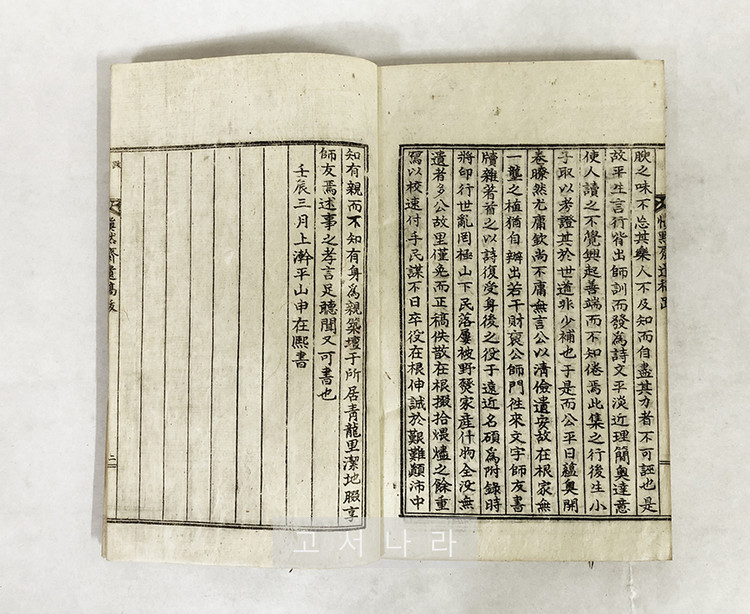 腴之味不忘其樂人不及知而自盡其力者不可誣也是
故平生言行皆出師訓而發爲詩文平淡近理簡奧達意
使人讀之不覺興起善端而不知倦焉此集之行後生小
子取以考證其於世道非少補也于是而公平日蘊奧開
卷瞭然尤庸欽尚不庸無言公以清儉遺安故在根家無
一壟之植猶自辦出若干財裒公師門往來文字師友書
牘雜著首之以詩復受身後之役于遠近名碩爲附錄時
將印行世亂罔極山下民落屢被野燹家産什物全沒無
遺者多公故里僅免而正稿佚散在根掇拾煨燼之餘重
寫以校速付手民謀不日卒役在根伸誠於艱難顚沛中
知有親而不知有身爲親築壇于所居青龍里潔地服享
師友焉述事之孝言足聽聞又可書也
壬辰三月上澣平山申在熙書
愼默齋遺稿跋
二
고서나라